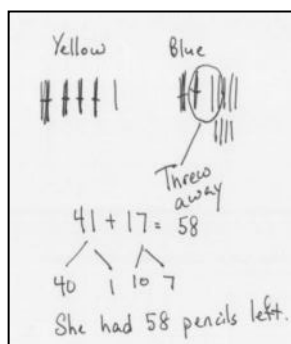 Yellow Blue
Threw
away
41 + 17 = 58
40 1 10 7
She had 58 pencils left.